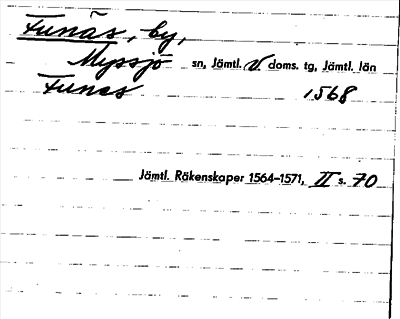 Funäs, by,
Myssjö sn, Jämtl. V. doms. tg, Jämtl. län
Funes 1568
Jämtl. Räkenskaper 1564–1571, II s. 70